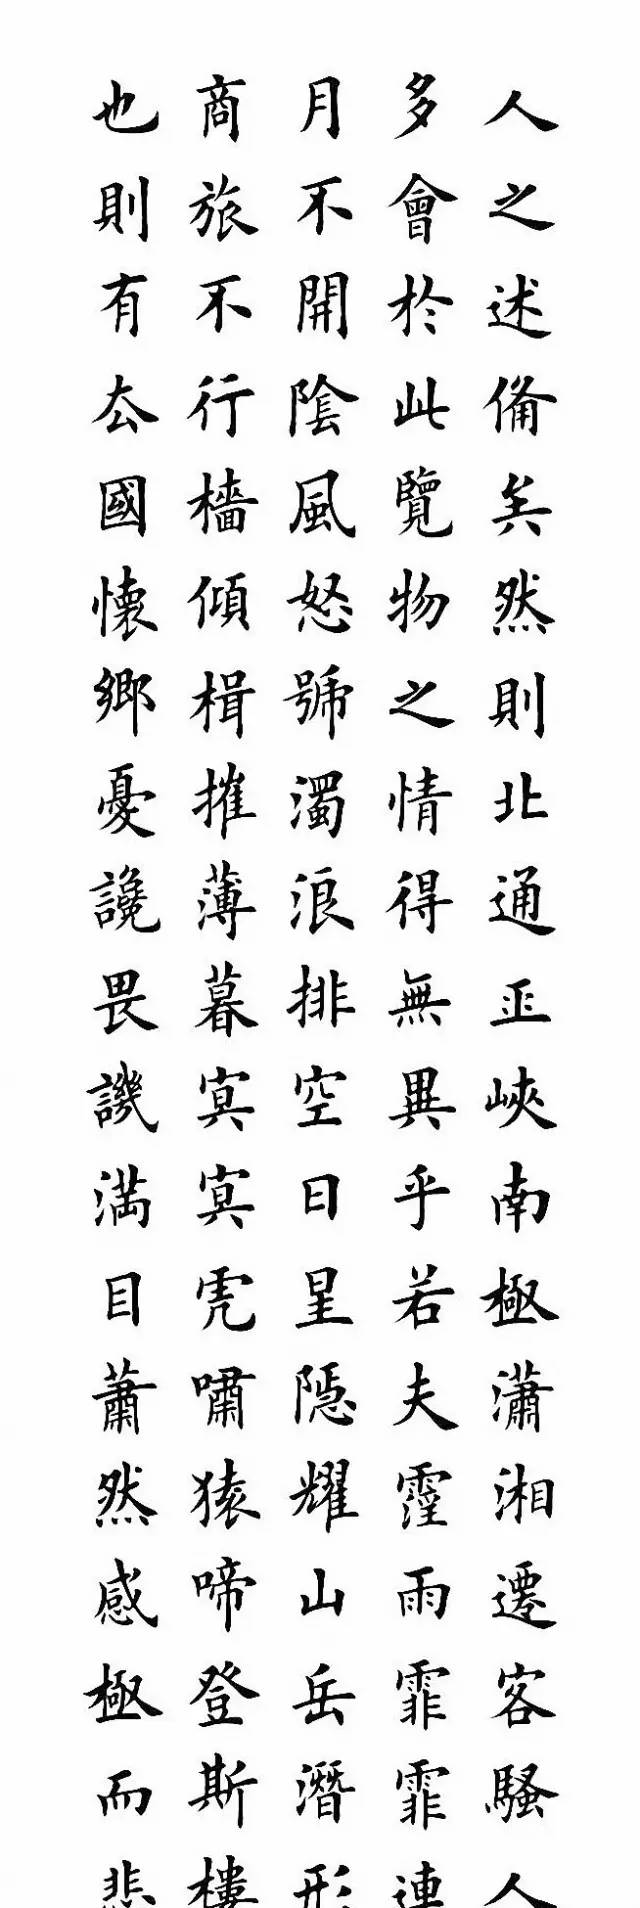 人之述備矣然則北通巫峽南極瀟湘遷客騷人
多會於此覽物之情得無異乎若夫霪雨霏霏連
月不開陰風怒號濁浪排空日星隱耀山岳潛形
商旅不行檣傾楫摧薄暮冥冥虎嘯猿啼登斯樓
也則有去國懷鄉憂讒畏譏滿目蕭然感極而悲